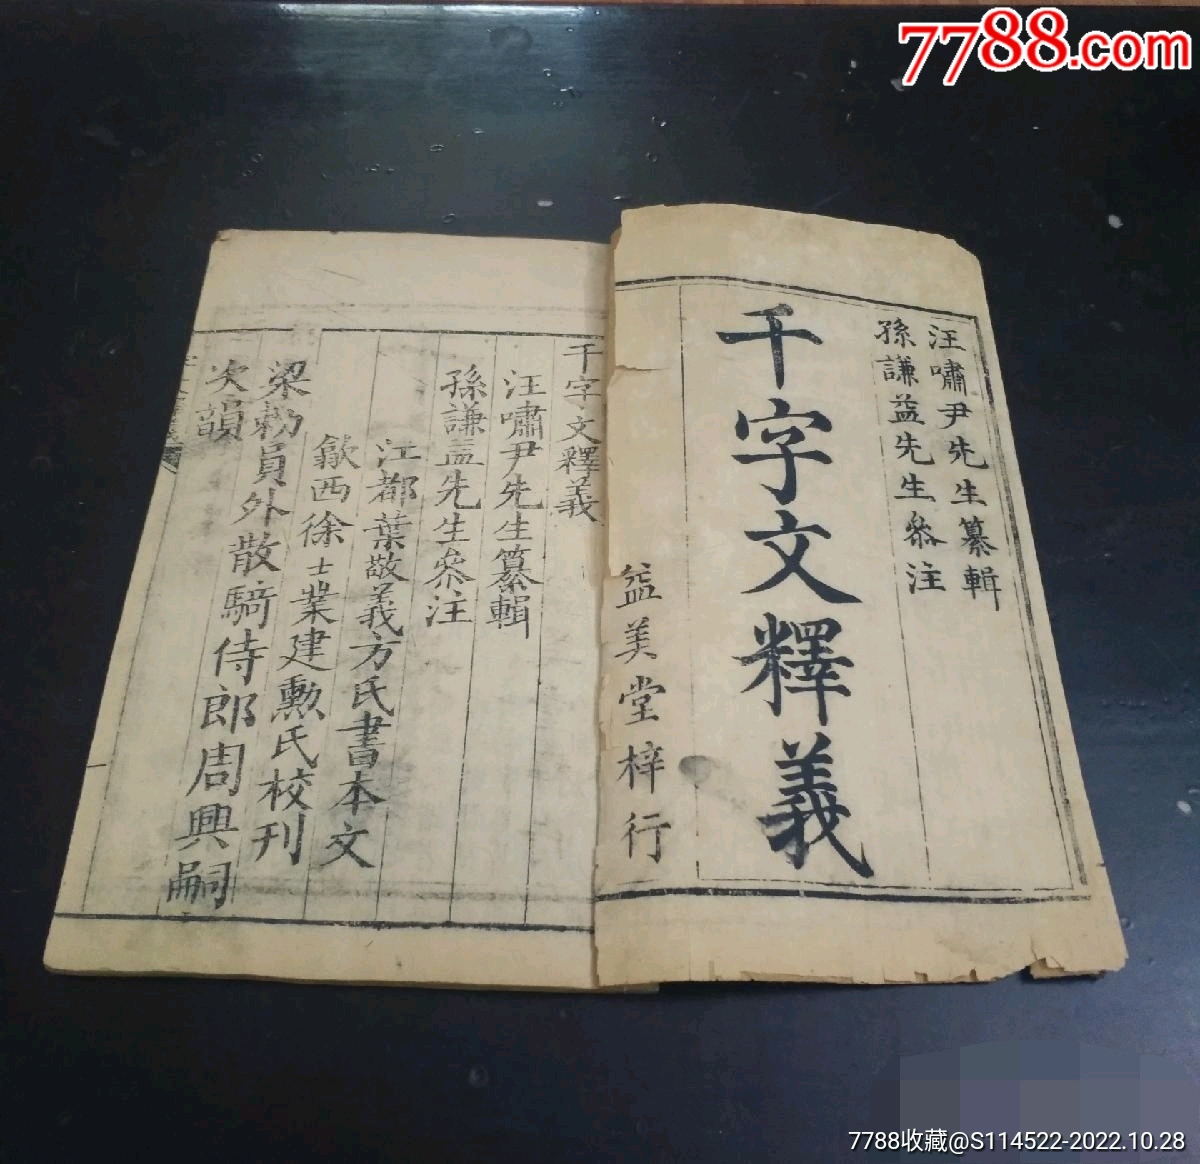 7788.com
汪嘯尹先生纂輯
孫謙益先生叅注
千字文釋義
益美堂梓行
千字文釋義
汪嘯尹先生纂輯
孫謙益先生叅注
江都葉敬義方氏書本文
歙西徐士業建勲氏校刊
梁勅員外散騎侍郎周興嗣
次韻
7788收藏@S114522-2022.10.28